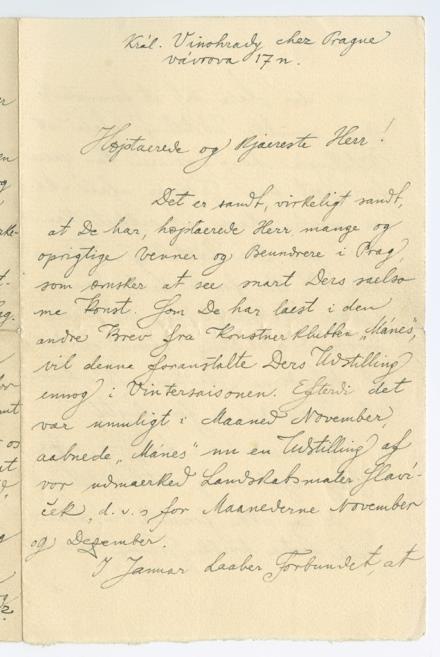 Král. Vinohrady chez Prague
Vávrova 17 n.
Højtaerede og Kjaereste Herr!
Det er sandt, virkeligt sandt,
at De har, højtaerede Herr mange og
oprigtige Venner og Beundrere i Prag,
som ønsker at see snart Ders saelso
me Konst. Som De har laest i den
andre Brev fra Konstnerklubben „Mánes",
vil denne foranstalte Ders Udstilling
ennog i Vintersaisonen. Efterdi det
var umuligt i Maaned November,
aabnede „Mánes" nu en Udstilling af
vor udmaerked Landskabsmaler Slaví-
ček, d. v. s for Maanederne November
og Dezember.
I Januar laaber Forbundet, at